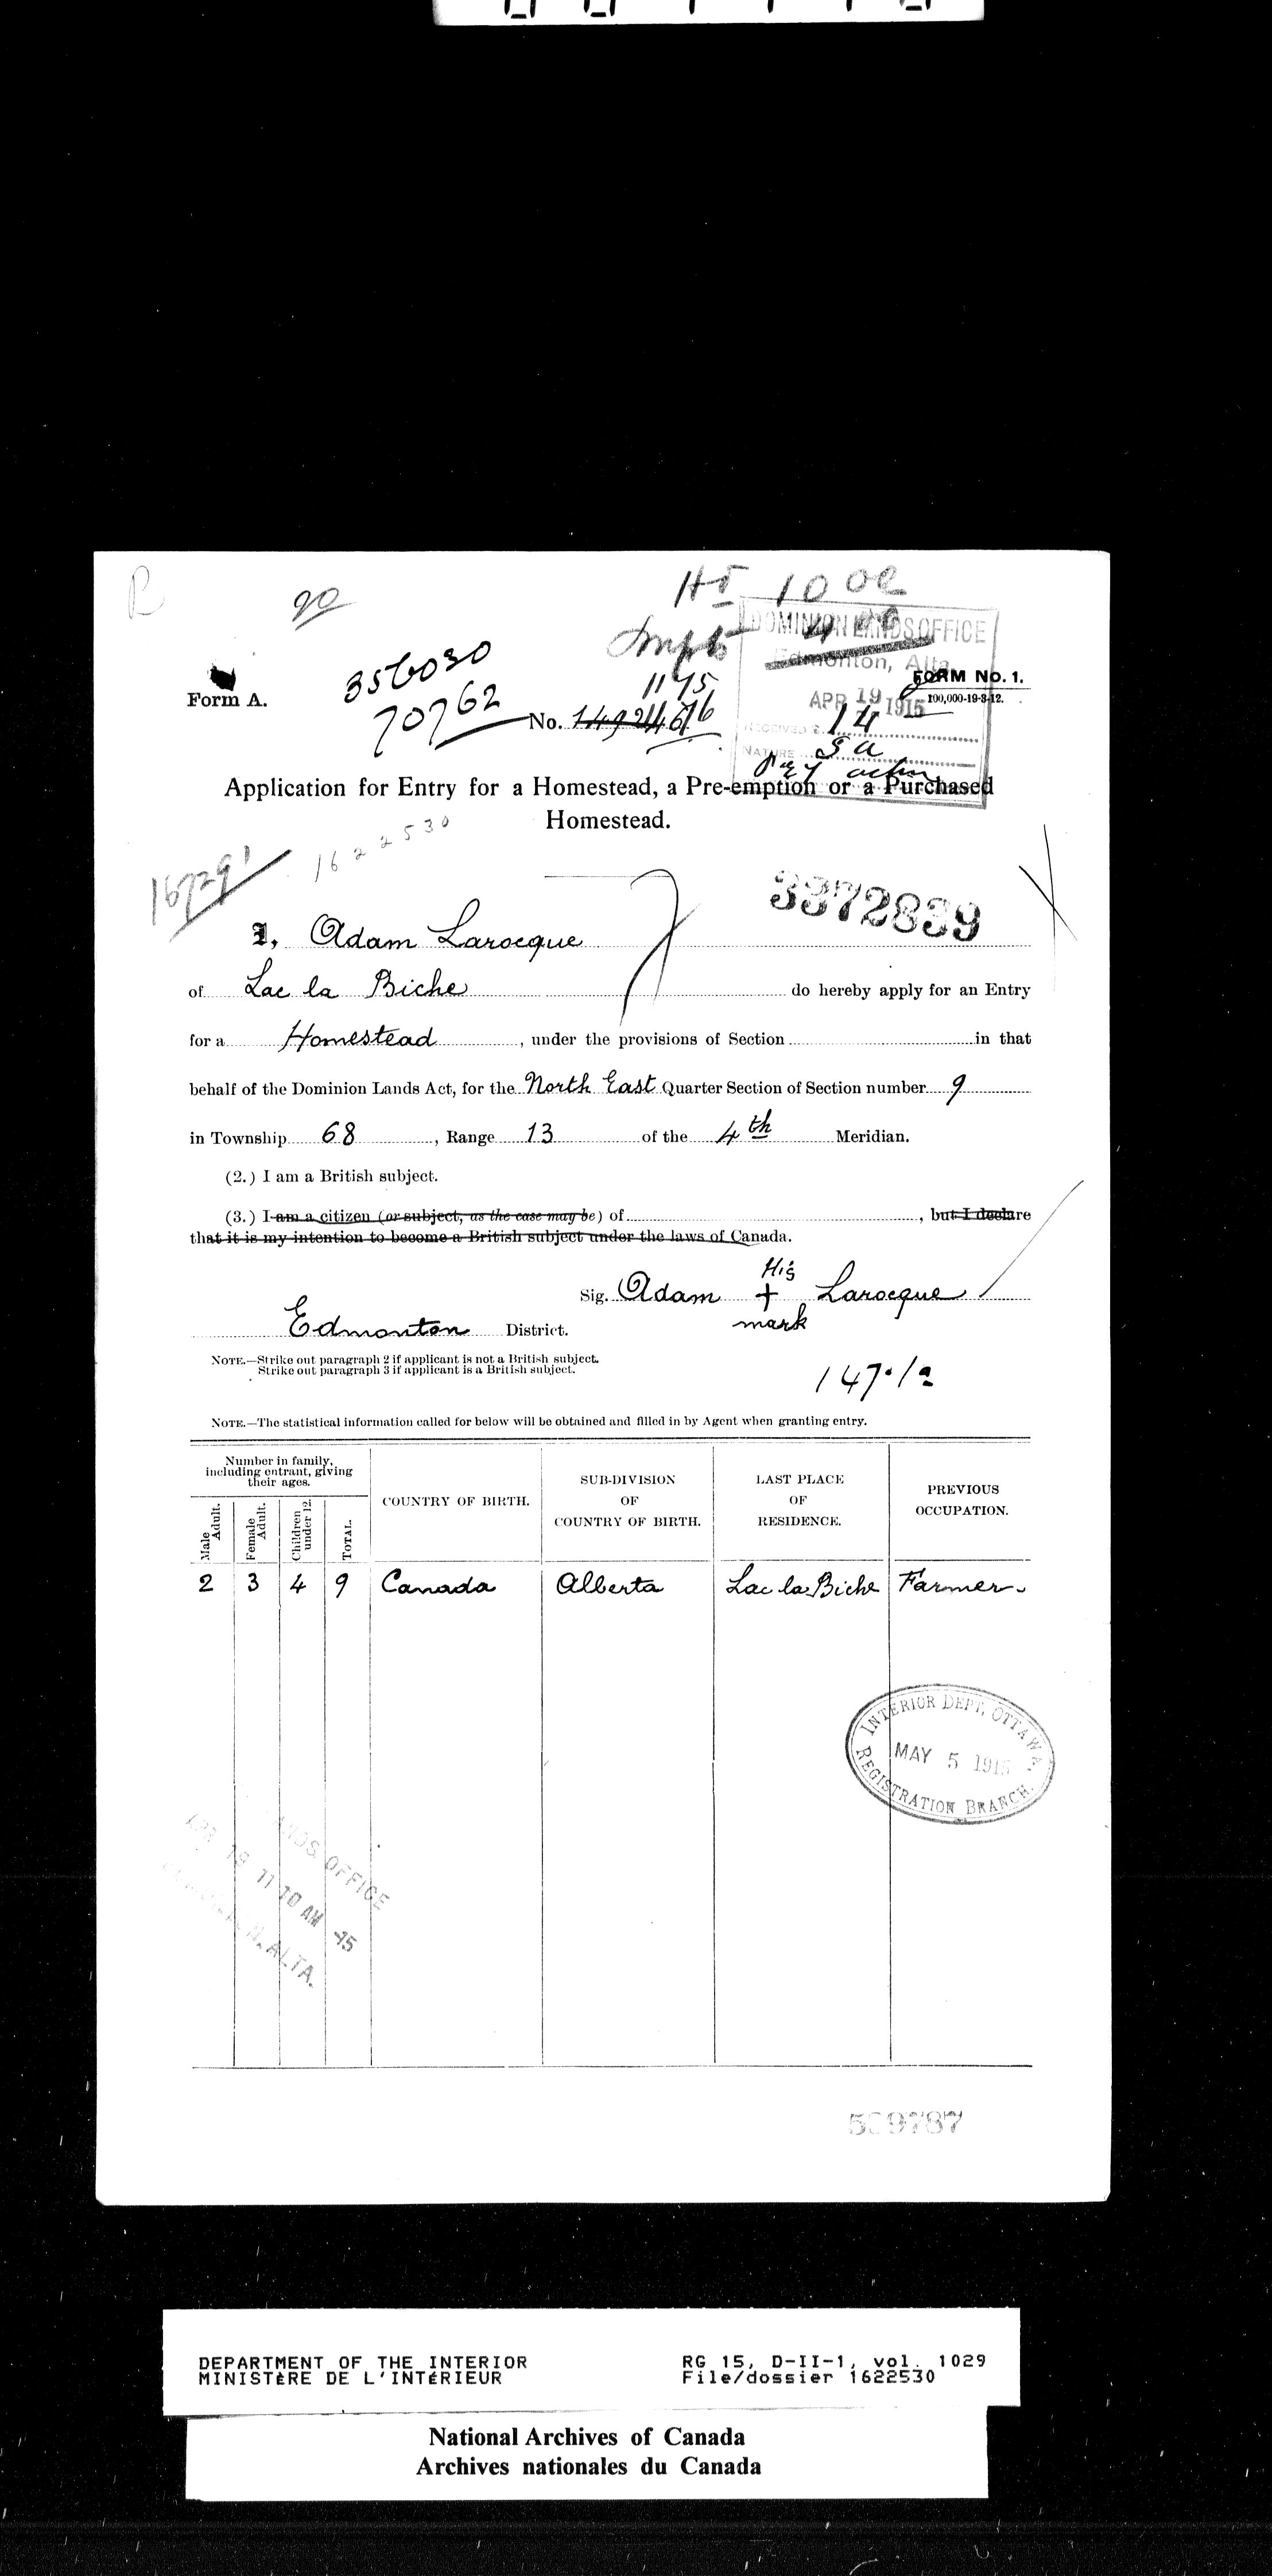 90
Ht 10 00
Impts
DOMINION LANDS OFFICE
Edmonton, Alta.
APR 19 1915
RECEIVED $ 14
NATURE
Form A.
356030
70762
1195
No.
FORM No. 1.
100,000-19-8-12.
Application for Entry for a Homestead, a Pre-emption or a Purchased
Homestead.
1622530
3372839
I, Adam Larocque
of Lac la Biche do hereby apply for an Entry
for a Homestead, under the provisions of Section in that
behalf of the Dominion Lands Act, for the North East Quarter Section of Section number 9
in Township 68, Range 13 of the 4th Meridian.
(2.) I am a British subject.
(3.) I am a citizen (or subject, as the case may be) of , but I declare
that it is my intention to become a British subject under the laws of Canada.
Sig. Adam His + mark Larocque
Edmonton District.
NOTE.—Strike out paragraph 2 if applicant is not a British subject.
Strike out paragraph 3 if applicant is a British subject.
NOTE.—The statistical information called for below will be obtained and filled in by Agent when granting entry.
Number in family, including entrant, giving their ages.
Male Adult. Female Adult. Children under 12. TOTAL.
COUNTRY OF BIRTH.
SUB-DIVISION OF COUNTRY OF BIRTH.
LAST PLACE OF RESIDENCE.
PREVIOUS OCCUPATION.
2 3 4 9 Canada Alberta Lac la Biche Farmer.
INTERIOR DEPT, OTTAWA.
MAY 5 1915
REGISTRATION BRANCH.
LANDS OFFICE
APR 19 11 10 AM '15
EDMONTON, ALTA.
DEPARTMENT OF THE INTERIOR
MINISTÈRE DE L'INTÉRIEUR
RG 15, D-II-1, vol. 1029
File/dossier 1622530
National Archives of Canada
Archives nationales du Canada